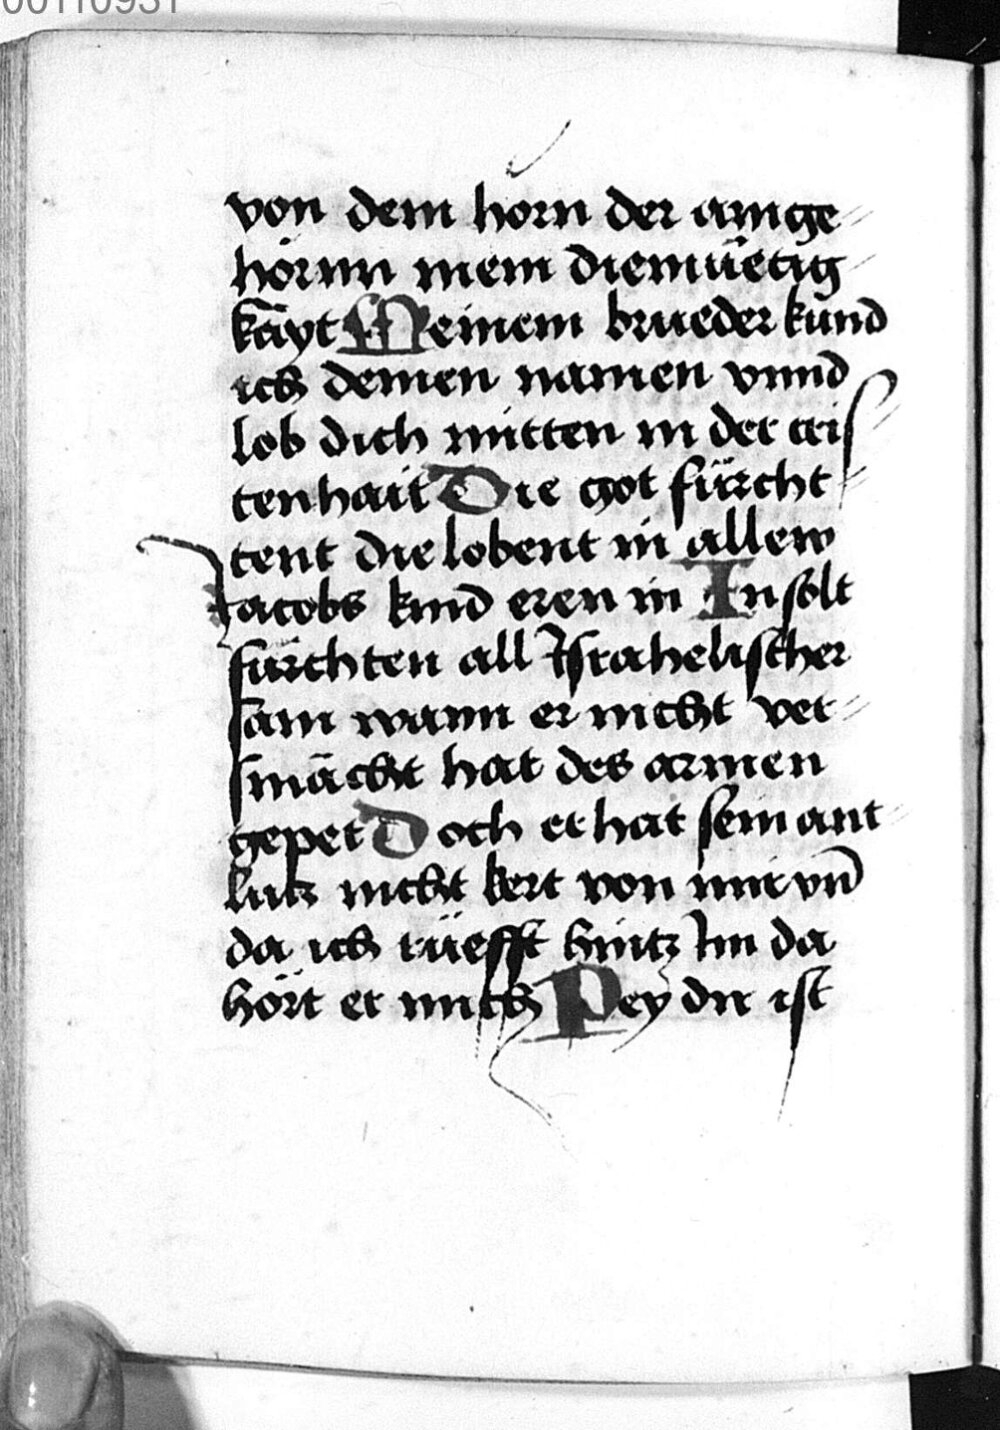 00110931
von dem horn der ainge-
hörnn mein diemüetig-
kayt Meinem brueder künd
ich deinen namen vnnd
lob dich mitten in der cris-
tenhait Die got fürcht-
tent die lobent in allew
Jacobs kind eren in In sölt
fürchten all Jsrahelischer
sam wann er nicht ver-
smächt hat des armen
gepet Doch er hat sein ant-
lutz nicht kert von mir vnd̄
da ich rüefft hintz Im da
hört er mich Pey dir ist